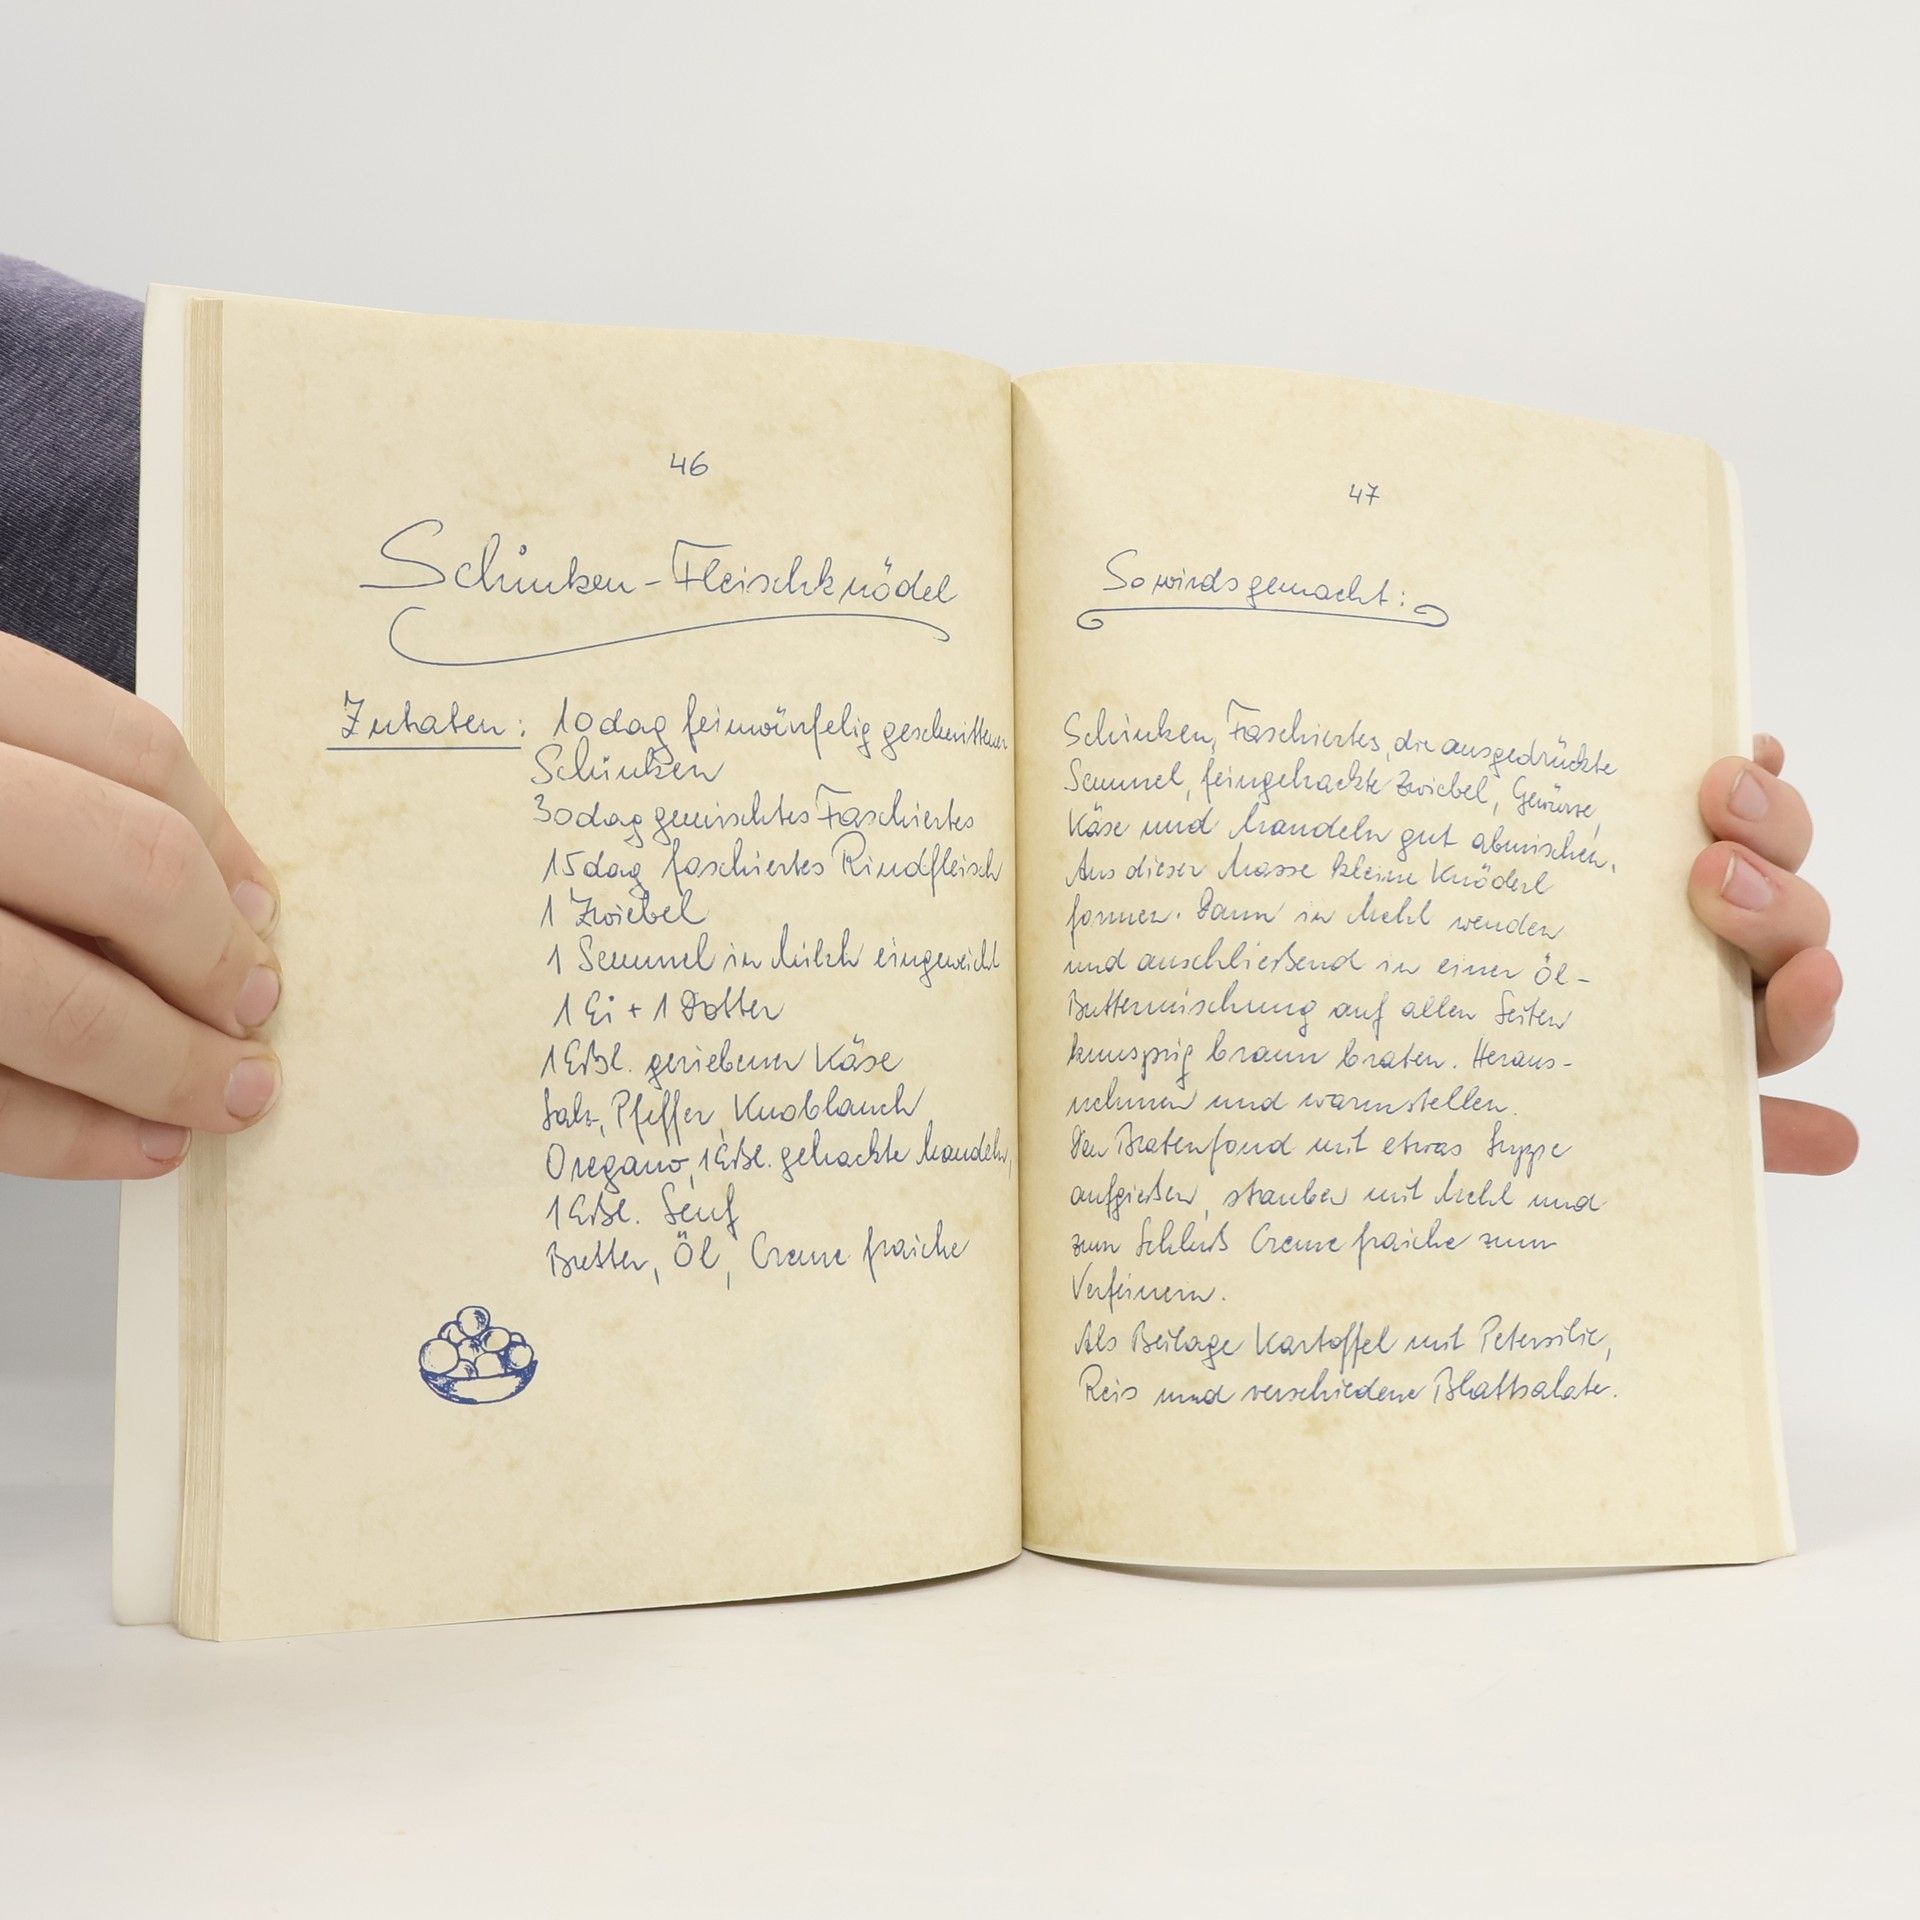 46
Schinken-Fleischknödel
Zutaten: 10dag feinwürfelig geschnittener
Schinken
30dag gemischtes Faschiertes
15dag faschiertes Rindfleisch
1 Zwiebel
1 Semmel in Milch eingeweicht
1 Ei + 1 Dotter
1 Eßl. geriebener Käse
Salz, Pfeffer, Knoblauch
Oregano, 1 Eßl. gehackte Mandeln,
1 Eßl. Senf
Butter, Öl, Creme fraiche
47
So wirds gemacht:
Schinken, Faschiertes, die ausgedrückte
Semmel, feingehackte Zwiebel, Gewürze,
Käse und Mandeln gut abmischen.
Aus dieser Masse kleine Knöderl
formen. Dann in Mehl wenden
und anschließend in einer Öl-
Buttermischung auf allen Seiten
knusprig braun braten. Heraus-
nehmen und warmstellen.
Den Bratenfond mit etwas Suppe
aufgießen, stauben mit Mehl und
zum Schluß Creme fraiche zum
Verfeinern.
Als Beilage Kartoffel mit Petersilie,
Reis und verschiedene Blattsalate.